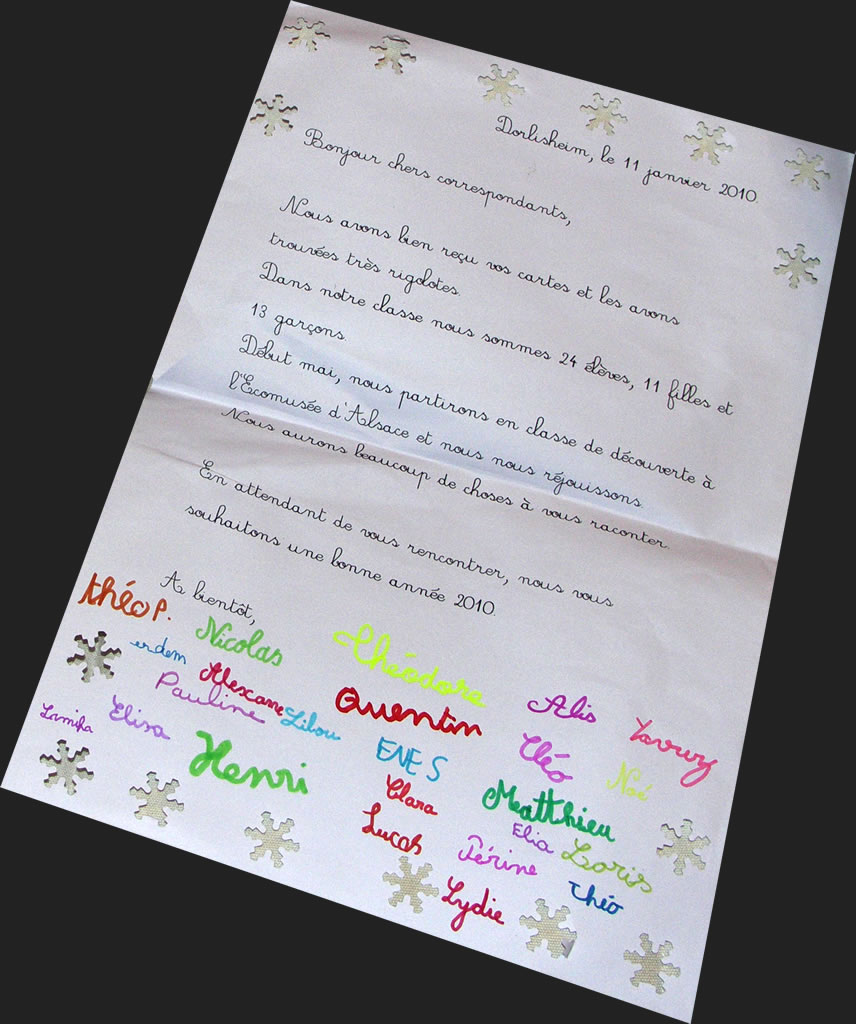 Dorlisheim, le 11 janvier 2010.
Bonjour chers correspondants,
Nous avons bien reçu vos cartes et les avons
trouvées très rigolotes.
Dans notre classe nous sommes 24 élèves, 11 filles et
13 garçons.
Début mai, nous partirons en classe de découverte à
l'Ecomusée d'Alsace et nous nous réjouissons.
Nous aurons beaucoup de choses à vous raconter.
En attendant de vous rencontrer, nous vous
souhaitons une bonne année 2010.
A bientôt,
théo P.
Nicolas
Théodore
erdem
Alexane
Quentin
Alis
Yavuz
Pauline
Lilou
Elisa
ENES
Cléo
Noé
Henri
Clara
Matthieu
Lucas
Elia
Loris
Périne
Théo
Lydie